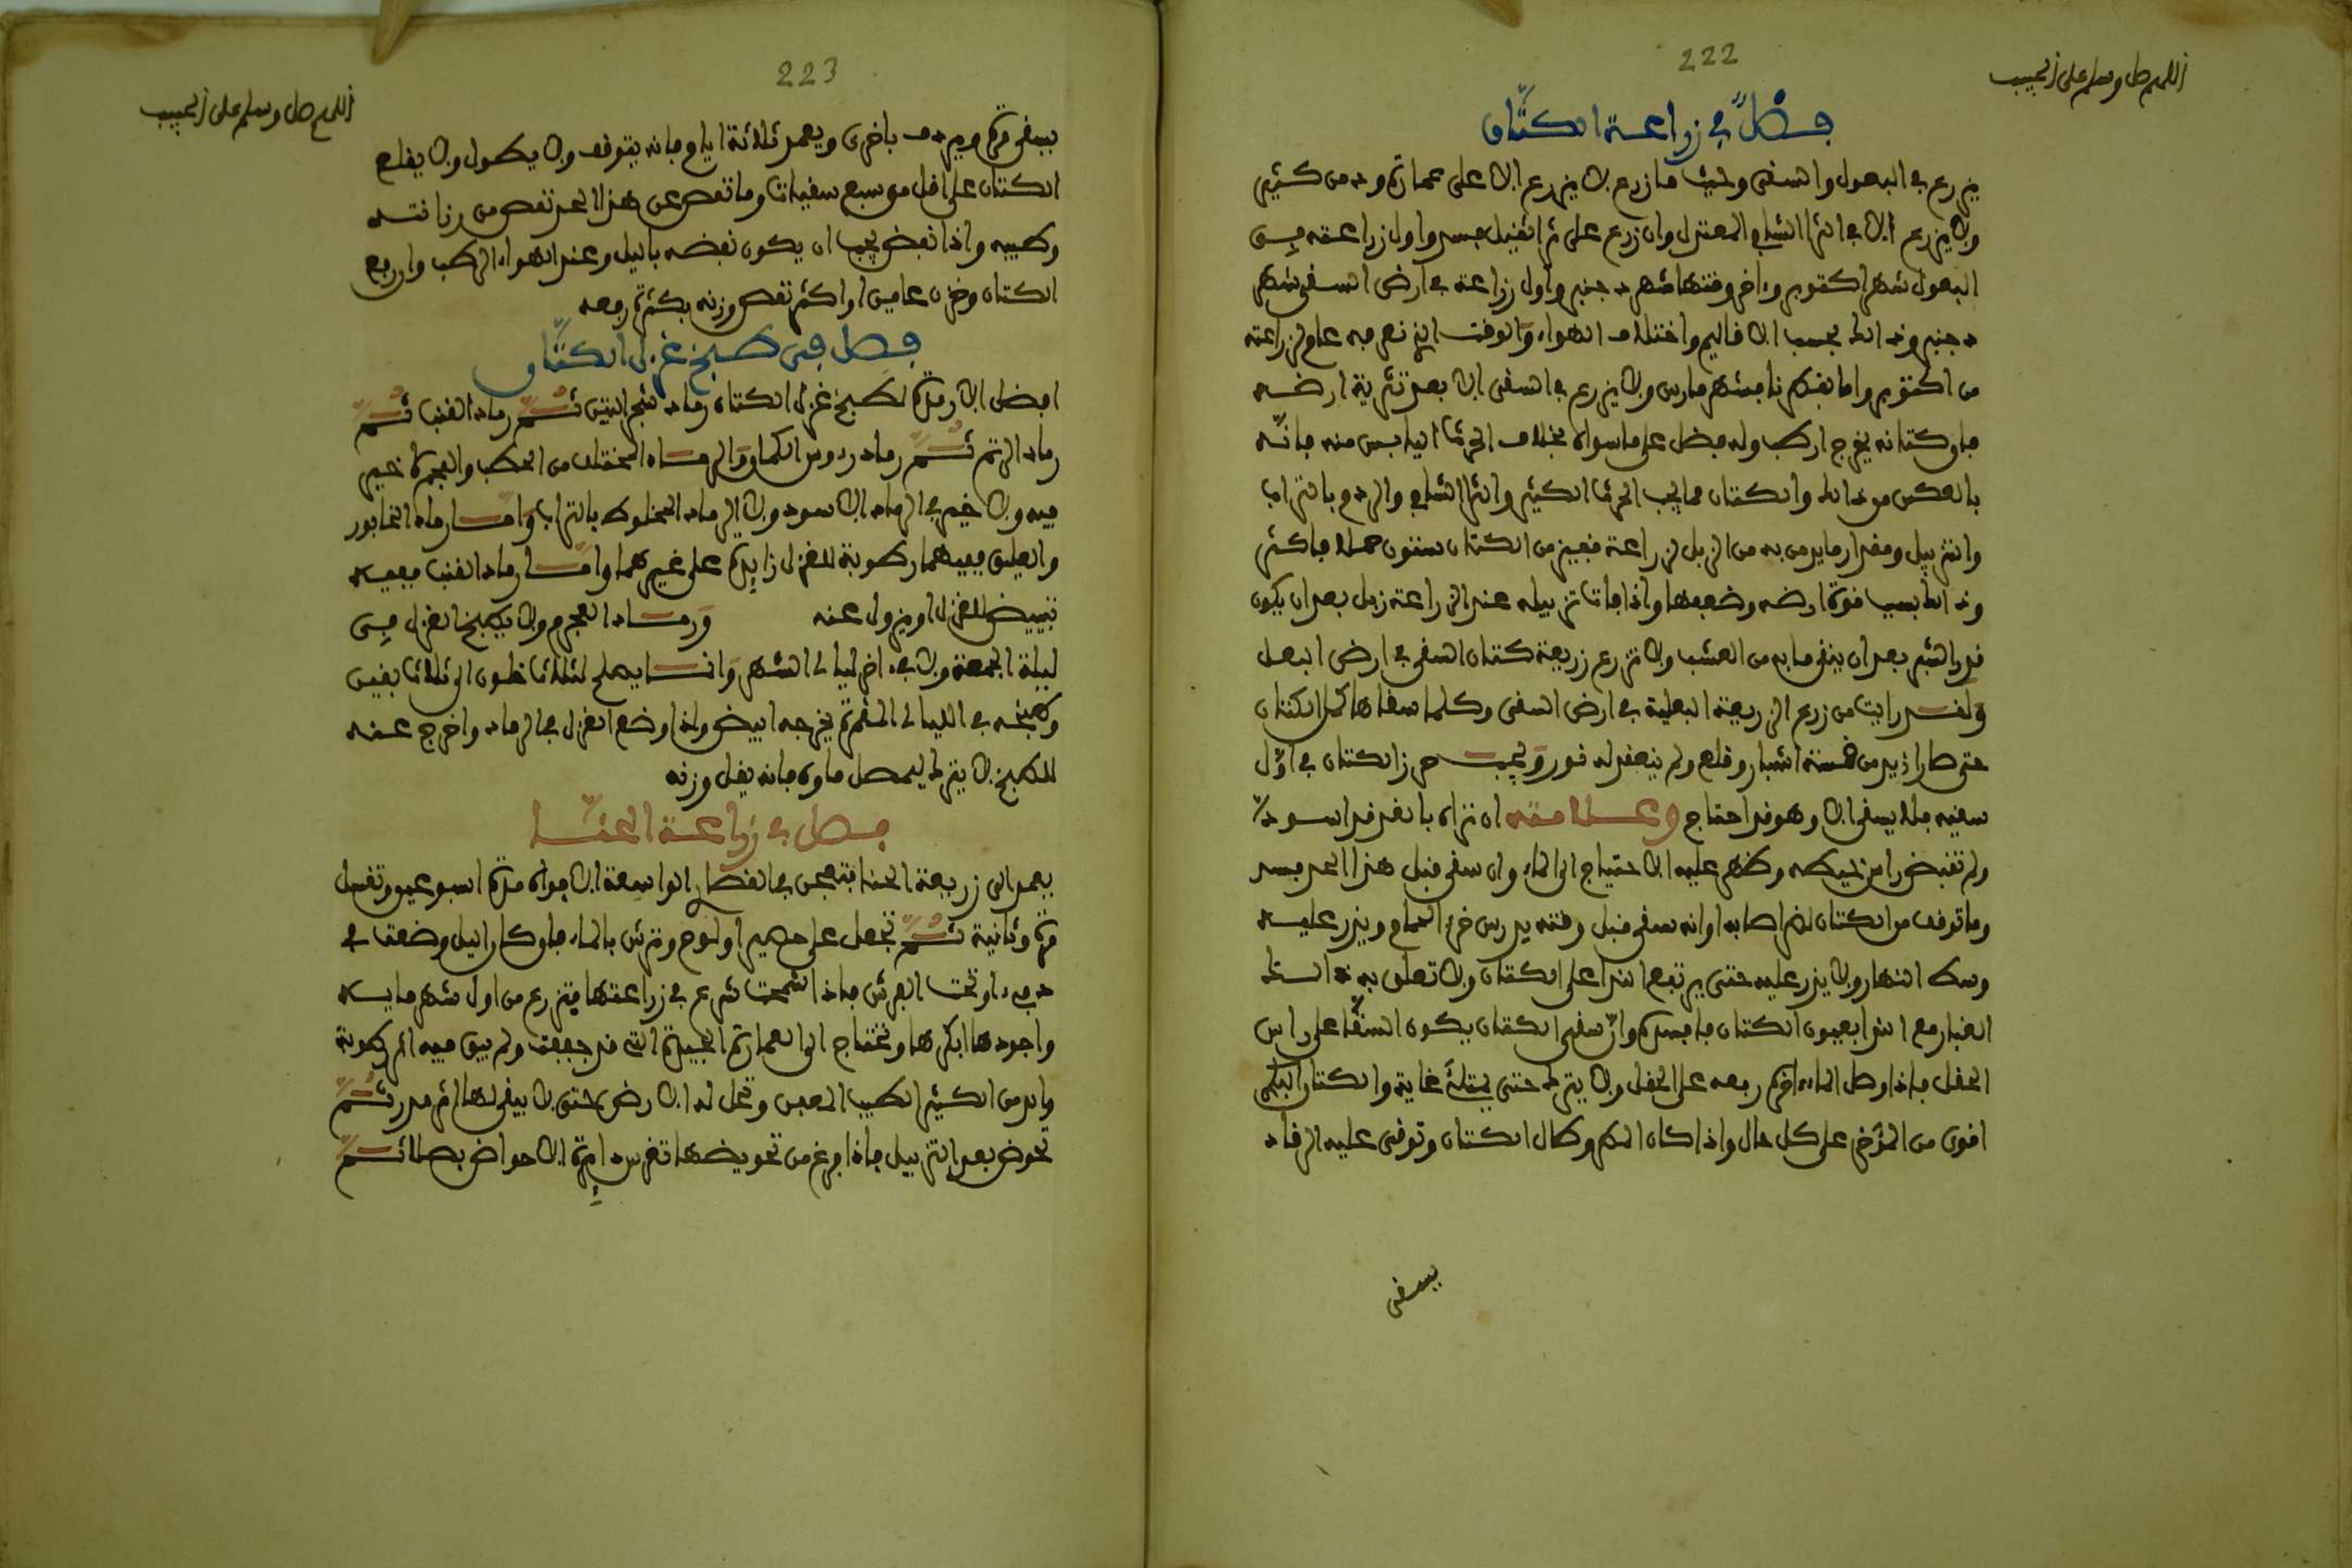 222
اللهم صل وسلم على الحبيب
فصل في زراعة الكتان
يزرع في البعول والسقي وحيث ما زرع لا يزرع الا على عمارة ودمن كثير
ولا يزرع الا في الثرا الشامي المعتدل وان زرع على ثرا ثقيل فسد واول زراعته في
البعول شهر اكتوبر وءاخر وقتها شهر دجنبر واول زراعة في ارض السقي شهر
دجنبر وذالك بحسب الاقاليم واختلاف الهواء والوقت الذي تعرفه عام لزراعته
من اكتوبر واما بقطرنا فشهر مارس ولا يزرع في السقي الا بعد تثرية ارضه
فان كتانه يخرج ارطب وله فضل على ما سواه بخلاف الحرث اليابس منه فانه
بالعكس من ذالك والكتان مما يحب الحرث الكثير والثرا الشامي والردم بالتراب
والتزبيل ومقدار ما يدمن به من الزبل لزراعة قفيز من الكتان ستون حملا فاكثر
وذالك بسبب قوة ارضه وضعفها واذا فات تزبيله عند الزراعة زبل بعد ان يكون
قدر الشبر بعد ان ينقى ما به من العشب ولا تزرع زريعة كتان السقي في ارض البعل
ولقد رايت من زرع الزريعة البعلية في ارض السقي وكلما سقاها طال الكتان
حتى صار ازيد من خمسة اشبار وقلع ولم ينعقد له نور ويجب حرز الكتان في اول
سقيه فلا يسقى الا وهو قد احتاج وعلامته ان تراه بالغد قد اسود
ولم تقبض راس خيطه وظهر عليه الاحتياج الى الماء وان سقي قبل هذا الحد فسد
وما توقف من الكتان لضر اصابه او انه سقي قبل وقته يدرس خرء الحمام ويذر عليه
وسط النهار ولا يذر عليه حتى يرتفع الندا على الكتان ولا تعلق به ذالك
الغبار مع الندا بعيون الكتان فافسده وان سقي الكتان يكون السقا على راس
الحقل فاذا وصل الماء اخره رفعه على الحقل ولا يترك حتى يمتلئ غاية والكتان البكري
اقوى من المؤخر على كل حال واذا كان المطر وطال الكتان وتوقى عليه الرقاد
يسقى
223
اللهم صل وسلم على الحبيب
يسقى مرة ويردف باخرى ويعمد ثلاثة ايام فانه يتوقف ولا يطول ولا يقلع
الكتان على اقل من سبع سقيات وما نقص عن هذا الحد نقص من رزانته
وطيبه واذا نفض يجب ان يكون نفضه بالليل وعند الهواء الرطب وان رفع
الكتان وخزن عامين او اكثر نقص وزنه بكثرة رفعه
فصل في طبخ غزل الكتان
افضل الارمدة لطبخ غزل الكتان رماد شجر التين ثم رماد القنب ثم
رماد الرتم ثم رماد رءوس الكمام والرماد المختلف من الحطب والعجرة خير
فيه ولا خير في الرماد الاسود ولا الرماد المخلوط بالتراب واما رماد الخابور
والعليق ففيهما رطوبة للغزل زايدة على غيرهما واما رماد القنب ففيه
تبييض للغزل او يزول عنه ورماد العجرم ولا يطبخ الغزل في
ليلة الجمعة ولا في ءاخر ليالي الشهر وانما يصلح لثلاث خلون الى ثلاث بقين
وطبخه في الليالي المقمرة يخرجه ابيض واذا وضع الغزل في الرماد واخرج عنه
للطبخ لا يترك ليحصل ماوه فانه يقل وزنه
فصل في زراعة الحنا
يعمد الى زريعة الحنا فتعجن في القصار الواسعة الافواه مدة اسبوعين وتغسل
مرة وثانية ثم تجعل على حصير او لوح وترش بالماء فان كان اليل وضعت في
دفء او تحت الفرش فاذا انشقت شرع في زراعتها فتزرع من اول شهر مايه
واجودها ابكرها وتحتاج الى العمارة الجيدة التي قد جففت ولم يبق فيه الرطوبة
والدمن الكثير الطيب المعفن وتحل له الارض حتى لا يبقى لها اثر مدر ثم
تحوض بعد التزبيل فاذا فرغ من تحويضها تغرس دايرة الاحواض بصلا ثم